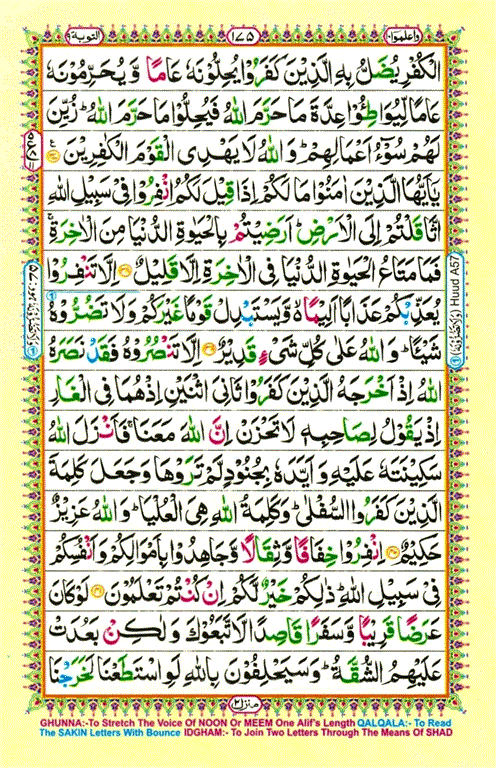 التوبة ٩
١٧٥
واعلموا ١٠
الْكُفْرِ يُضَلُّ بِهِ الَّذِيْنَ كَفَرُوْا يُحِلُّوْنَهٗ عَامًا وَّ يُحَرِّمُوْنَهٗ
عَامًا لِّيُوَاطِـُٔوْا عِدَّةَ مَا حَرَّمَ اللّٰهُ فَيُحِلُّوْا مَا حَرَّمَ اللّٰهُ ؕ زُيِّنَ
لَهُمْ سُوْٓءُ اَعْمَالِهِمْ ؕ وَ اللّٰهُ لَا يَهْدِی الْقَوْمَ الْكٰفِرِيْنَ
يٰۤاَيُّهَا الَّذِيْنَ اٰمَنُوْا مَا لَكُمْ اِذَا قِيْلَ لَكُمُ انْفِرُوْا فِیْ سَبِيْلِ اللّٰهِ
اثَّاقَلْتُمْ اِلَی الْاَرْضِ ؕ اَرَضِيْتُمْ بِالْحَيٰوةِ الدُّنْيَا مِنَ الْاٰخِرَةِ ۚ
فَمَا مَتَاعُ الْحَيٰوةِ الدُّنْيَا فِی الْاٰخِرَةِ اِلَّا قَلِيْلٌ ۝۳۸ اِلَّا تَنْفِرُوْا
يُعَذِّبْكُمْ عَذَابًا اَلِيْمًا ۙ۬ وَّ يَسْتَبْدِلْ قَوْمًا غَيْرَكُمْ وَ لَا تَضُرُّوْهُ
شَيْـًٔا ؕ وَ اللّٰهُ عَلٰی كُلِّ شَیْءٍ قَدِيْرٌ ۝۳۹ اِلَّا تَنْصُرُوْهُ فَقَدْ نَصَرَهُ
اللّٰهُ اِذْ اَخْرَجَهُ الَّذِيْنَ كَفَرُوْا ثَانِیَ اثْنَيْنِ اِذْ هُمَا فِی الْغَارِ
اِذْ يَقُوْلُ لِصَاحِبِهٖ لَا تَحْزَنْ اِنَّ اللّٰهَ مَعَنَا ۚ فَاَنْزَلَ اللّٰهُ
سَكِيْنَتَهٗ عَلَيْهِ وَ اَيَّدَهٗ بِجُنُوْدٍ لَّمْ تَرَوْهَا وَ جَعَلَ كَلِمَةَ
الَّذِيْنَ كَفَرُوا السُّفْلٰی ؕ وَ كَلِمَةُ اللّٰهِ هِیَ الْعُلْيَا ؕ وَ اللّٰهُ عَزِيْزٌ
حَكِيْمٌ ۝۴۰ اِنْفِرُوْا خِفَافًا وَّ ثِقَالًا وَّ جَاهِدُوْا بِاَمْوَالِكُمْ وَ اَنْفُسِكُمْ
فِیْ سَبِيْلِ اللّٰهِ ؕ ذٰلِكُمْ خَيْرٌ لَّكُمْ اِنْ كُنْتُمْ تَعْلَمُوْنَ ۝۴۱ لَوْ كَانَ
عَرَضًا قَرِيْبًا وَّ سَفَرًا قَاصِدًا لَّاتَّبَعُوْكَ وَ لٰكِنْۢ بَعُدَتْ
عَلَيْهِمُ الشُّقَّةُ ؕ وَ سَيَحْلِفُوْنَ بِاللّٰهِ لَوِ اسْتَطَعْنَا لَخَرَجْنَا
Huud A57
منزل ٢
GHUNNA:-To Stretch The Voice Of NOON Or MEEM One Alif's Length QALQALA:- To Read
The SAKIN Letters With Bounce IDGHAM:- To Join Two Letters Through The Means Of SHAD